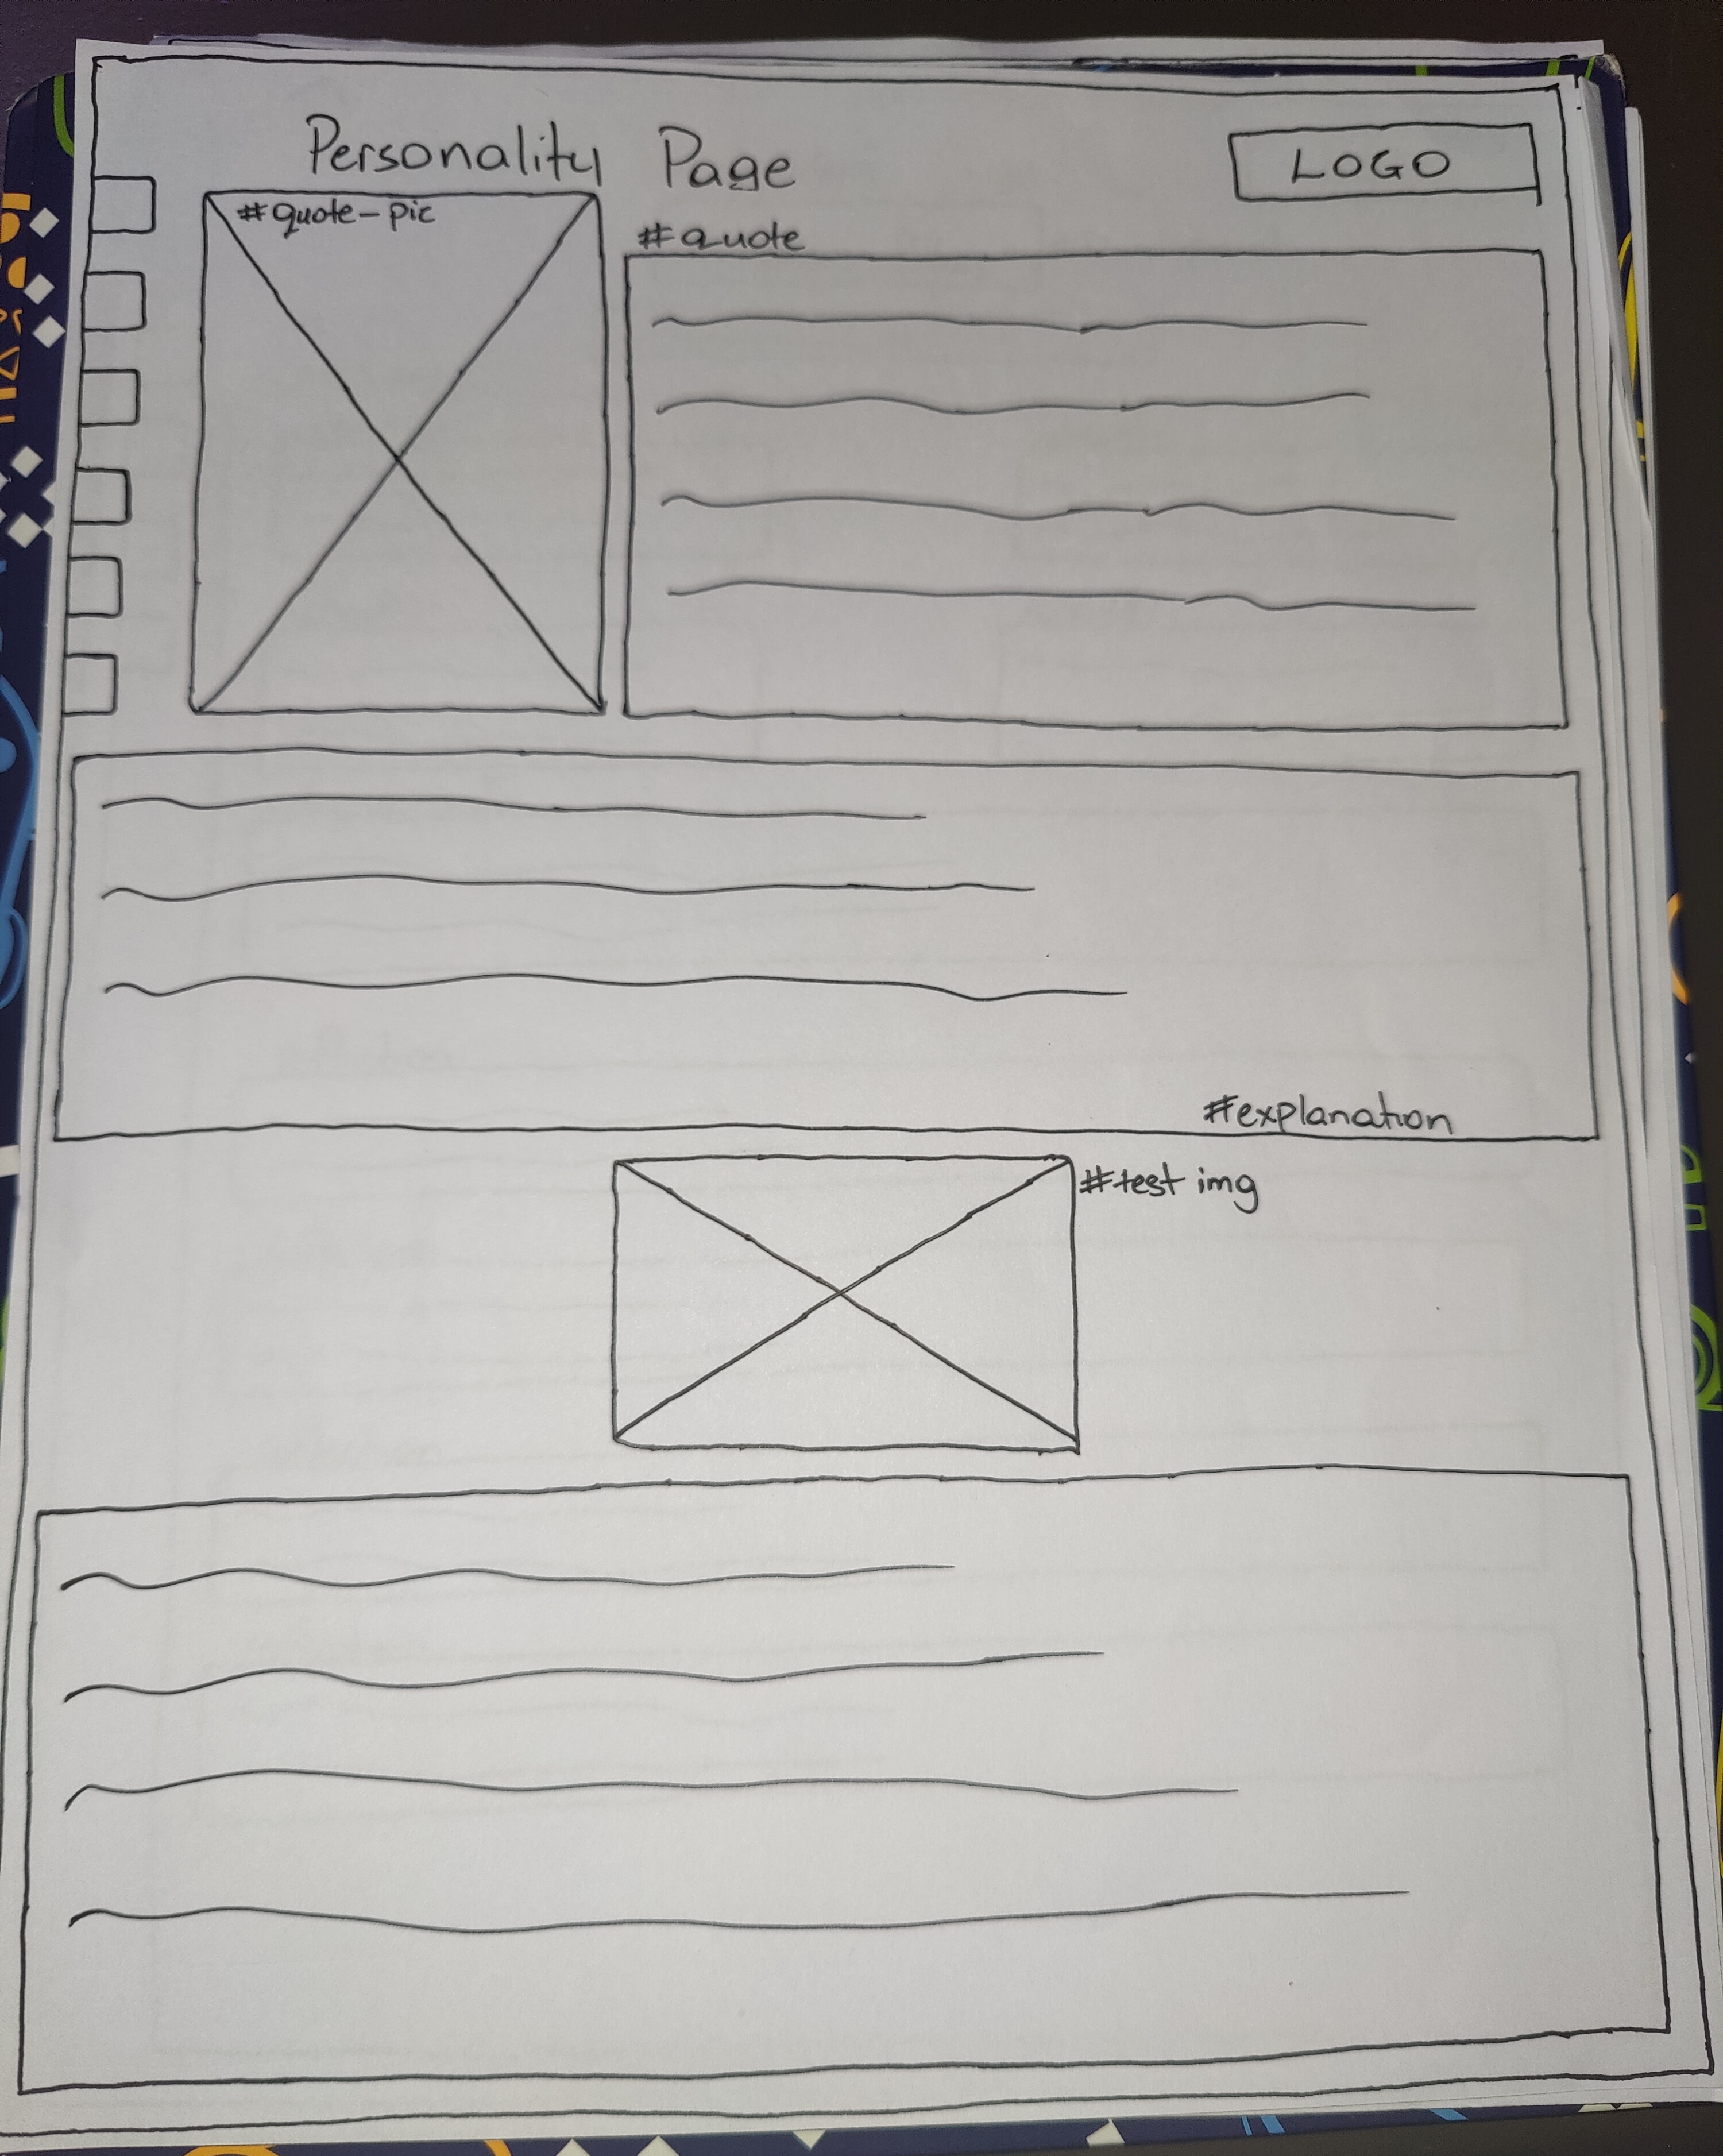 Personality Page
LOGO
#quote-pic
#quote
#explanation
#test img